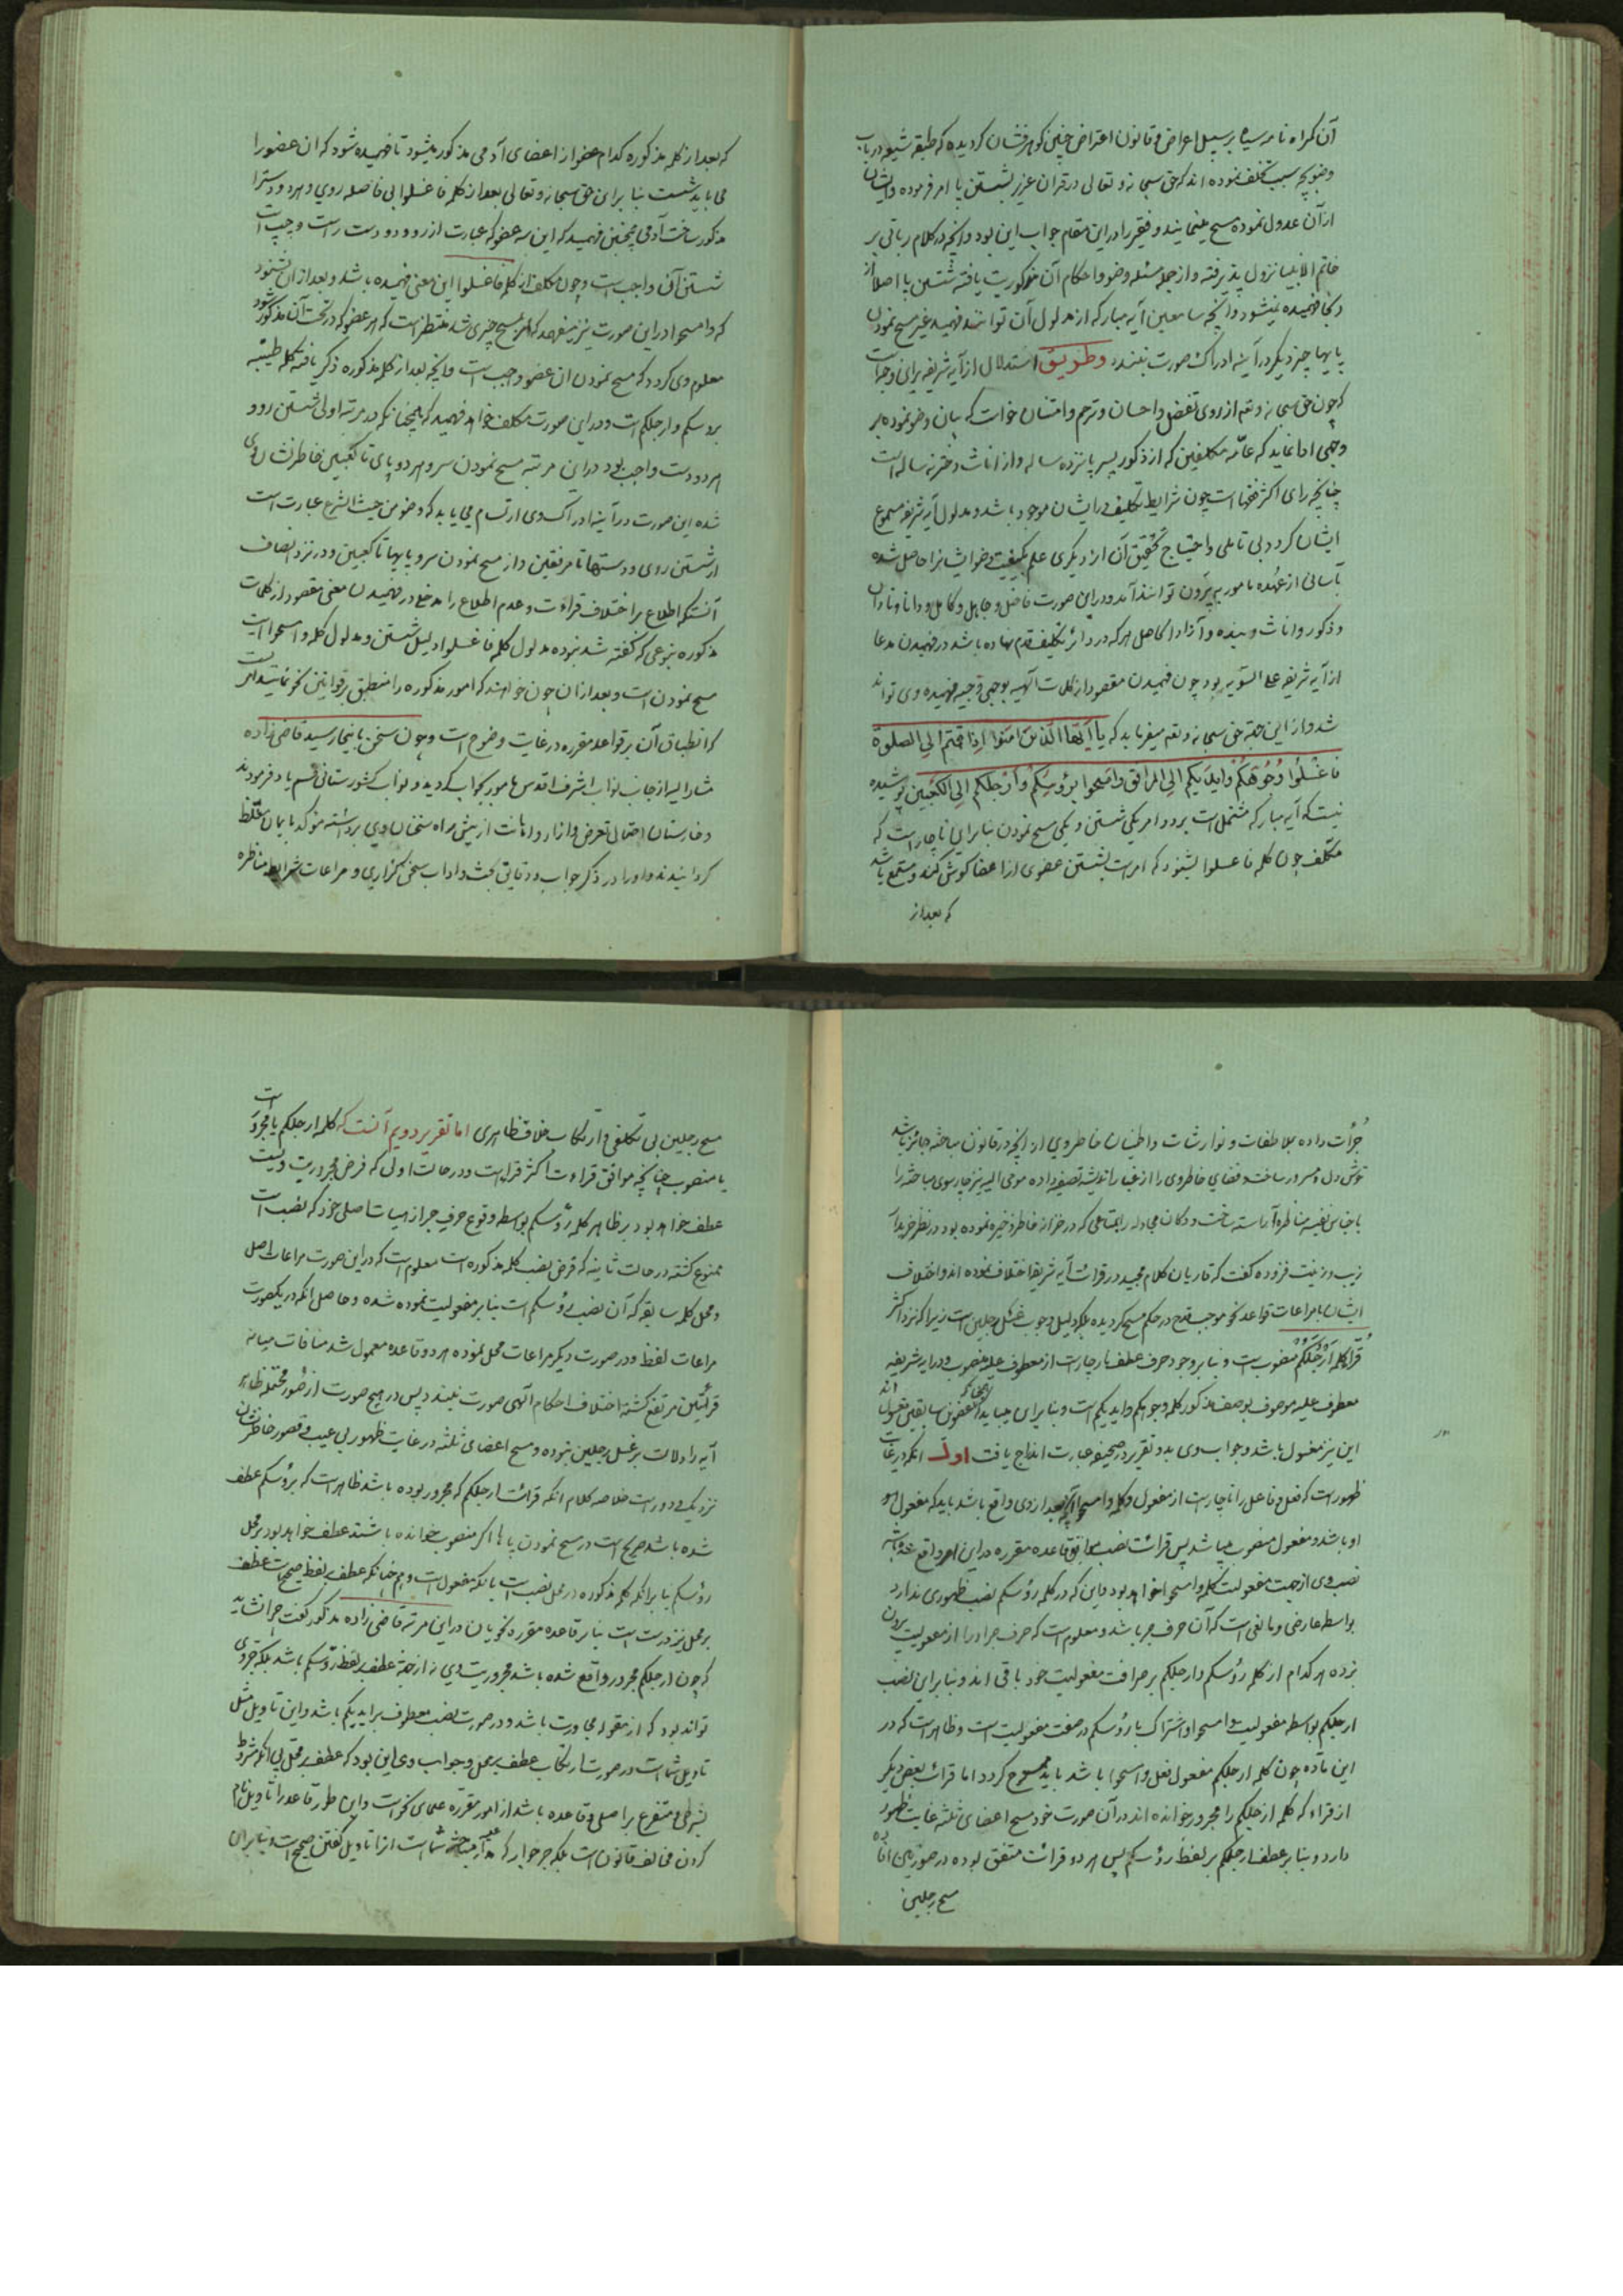 آن گمراه نامه سیاه بر سبیل اعراض و قانون اعتراض چنین گوهرفشان گردیده که طبقه شیعه در باب
وضو بچه سبب تکلف نموده اند که حق سبحانه و تعالی در قران عزیز بشستن پا امر فرموده و ایشان
از آن عدول نموده مسح مینمایند و فقیر را در این مقام جواب این بود و آنچه در کلام ربانی بر
خاتم الانبیا نزول پذیرفته و از جمله مسئله وضو و احکام آن مذکوریت یافته شستن پا اصلا از
دکجا فهمیده نمیشود و آنچه سامعین آیه مبارکه از مدلول آن توانند فهمید غیر مسح نمودن
پایها چیز دیگر در آینه ادراک صورت نبندد و طریق استدلال از آیه شریفه برای وجه است
که چون حق سبحانه و تعم از روی تفضل و احسان و ترحم و امتنان خواست که بیان وضو نموده بر
وجهی ادا نماید که عامّه مکلفین که از ذکور پسر پانزده ساله و از اناث دختر نه ساله است
چنانچه رای اکثر فقها است چون شرایط تکلیف در ایشان موجود باشد و مدلول آیه شریفه مسموع
ایشان گردد بی تاملی و احتیاج تحقیق آن از دیگری علم بکیفیت وضو ایشانرا حاصل شده
بآسانی از عهده مامور به بیرون توانند آمد و در این صورت فاضل و جاهل و کامل و دانا و نادان
و ذکور و اناث و بنده و آزاد الحاصل هر که در دائره تکلیف قدم نهاده باشد در فهمیدن مدعا
از آیه شریفه علی السّویه بود چون فهمیدن مقصود از کلمات الهیه بوجهی وجیه فهمیده وی تواند
شد و از این جهة حق سبحانه و تعم میفرماید که یا اَیُّهَا الَّذینَ امَنُوا اِذا قُمتُم اِلَی الصلوة
فَاغسِلُوا وُجُوهَکُم وَاَیدِیَکُم اِلَی المَرافِقِ وَامسَحُوا بِرُؤسِکُم وَاَرجُلَکُم اِلَی الکَعبَین پوشیده
نیست که آیه مبارکه مشتمل است بر دو امر یکی شستن و یکی مسح نمودن بنابراین ناچار است که
مکلف چون کلمه فاغسلوا بشنود که امر است بشستن عضوی از اعضا گوش کند و مستمع باشد
که بعد از
که بعد از کلمه مذکوره کدام عضو از اعضای آدمی مذکور میشود تا فهمیده شود که ان عضو را
می باید شست بنا براین حق سبحانه و تعالی بعد از کلمه فاغسلوا بی فاصله روی و هر دو دست را
مذکور ساخت آدمی همچنین فهمید که این سه عضو که عبارت از رو و دو دست راست و چپ است
شستن آن واجب است و چون مکلف از کلمه فاغسلوا این معنی فهمیده باشد و بعد از ان بشنود
که وامسحوا در این صورت نیز میفهمد که امر بمسح چیزی شد منتظر است که هر عضو که در تحت آن مذکور شود
معلوم وی گردد که مسح نمودن ان عضو واجب است و آنچه بعد از کلمه مذکوره ذکر یافته کلمه طیّبه
برؤسکم وارجلکم است و در این صورت مکلف خواهد فهمید که همچنانکه در مرتبه اولی شستن رو و
هر دو دست واجب بود در این مرتبه مسح نمودن سر و هر دو پای تا کعبین خاطر نشان وی
شده این صورت در آینه ادراک وی ارتسام می یابد که وضو من حیث الشرع عبارت است
از شستن روی و دستها تا مرفقین و از مسح نمودن سر و پایها تا کعبین و در نزد انصاف
آنستکه اطلاع بر اختلاف قراءت و عدم اطلاع را مدخلی در فهمیدن معنی مقصود از کلمات
مذکوره بنوعی که گفته شد نبوده مدلول کلمه فاغسلوا دلیل شستن و مدلول کلمه وامسحوا است
مسح نمودن است و بعد از ان چون خواهند که امور مذکوره را منطبق بر قوانین نحو نمایند
که انطباق آن بر قواعد مقرره در غایت وضوح است و چون سخن باینجا رسید قاضی زاده
مشار الیه از جانب نواب اشرف اقدس مامور بجواب گردید و نواب کشورستانی قسم یاد فرمودند
و خارستان احتمال تعرض و ازار و اهانت از پیش راه سخنان وی برداشته مؤکد بایمان مغلّظ
گردانیدند و او را در ذکر جواب و دقایق بحث و اداب سخن گزاری و مراعات شرایط مناظره
جُرأت داده بملاطفات و نوازشات و اطمینان خاطر وی از آنچه در قانون مباحثه جائز باشد
خوش دل و مسرور ساخت و فضای خاطر وی را از غبار اندیشه تصفیه داده مومی الیه نیز چارسوی مباحثه را
باجناس نفیسه مناظره آراسته ساخت و دکان مجادله را بمتاعی که در خزانه خاطر ذخیره نموده بود در نظر خریدار
زیب و زینت فزوده گفت که قاریان کلام مجید در قرائت آیه شریفه اختلاف نموده اند و اختلاف
ایشان با مراعات قواعد نحو موجب قدح در حکم مسح گردیده بلکه دلیل وجوب غسل رجلین است زیرا که نزد اکثر
قُرّا کلمه اَرجُلَکُم منصوب است و بنا بر وجود حرف عطف ناچار است از معطوف علیه منصوب و در ایه شریفه
معطوف علیه موصوف بوصف مذکور کلمه وجوهکم وایدیکم است و بنا براین میباید که آنچنانکه عضوین سابقین مغسول اند
این نیز مغسول باشد و جواب وی بدو تقریر در صحیفه عبارت اندراج یافت اول انکه در غایت
ظهور است که فعل و فاعل را ناچار است از مفعول و کلمه وامسحوا آنچه بعد از وی واقع باشد باید که مفعول به
او باشد و مفعول منصوب میباشد پس قرائت نصب مطابق قاعده مقرره در این امر واقع شده باشد
نصب وی از جهت مفعولیت کلمه وامسحوا خواهد بود و این که در کلمه رؤسکم نصب ظهوری ندارد
بواسطه عارضی و مانعی است که آن حرف جر باشد و معلوم است که حرف جر او را از مفعولیت بیرون
نبرده هر کدام از کلمه رؤسکم وارجلکم بر صرافت مفعولیت خود باقی اند و بنا براین نصب
ارجلکم بواسطه مفعولیت وامسحوا و اشتراک با رؤسکم در صفت مفعولیت است و ظاهر است که در
این ماده چون کلمه ارجلکم مفعول فعل وامسحوا باشد باید ممسوح گردد اما قرائت بعض دیگر
از قراء که کلمه ارجلکم را مجرور خوانده اند در آن صورت خود مسح اعضای ثلثه غایت ظهور
دارد و بنا بر عطف ارجلکم بر لفظ رؤسکم پس هر دو قرائت متفق بوده در صورتین افاده
مسح رجلین
مسح رجلین بی تکلفی و ارتکاب خلاف ظاهری اما تقریر دویم آنست که کلمه ارجلکم یا مجرور است
یا منصوب چنانچه موافق قراءت اکثر قراست و در حالت اولی که فرض مجروریت ویست
عطف خواهد بود بر ظاهر کلمه رؤسکم بواسطه وقوع حرف جر از هیات اصلی خود که نصب است
ممنوع گشته در حالت ثانیه که فرض نصب کلمه مذکوره است معلوم است که در این صورت مراعات اصل
و محل کلمه سابقه که آن نصب رؤسکم است بنابر مفعولیت نموده شده و حاصل انکه در یکصورت
مراعات لفظ و در صورت دیگر مراعات محل نموده هر دو قاعده معمول شد منافات میانه
قرائتین مرتفع گشته اختلاف احکام الهی صورت نبندد پس در هیچ صورت از صُور محتمله ظاهر
آیه را دلالت بر غسل رجلین نبوده و مسح اعضای ثلثه در غایت ظهور بی عیب و قصور خاطرنشان
نزدیک و دور است خلاصه کلام انکه قرائت ارجلکم که مجرور بوده باشد ظاهر است که برؤسکم عطف
شده باشد صریح است در مسح نمودن پاها اگر منصوب خوانده باشند عطف خواهد بود بر محل
رؤسکم بنابر انکه کلمه مذکوره در محل نصب است بانکه مفعول است و همچنانکه عطف بر لفظ صحیح است عطف
بر محل نیز درست است بنابر قاعده مقرره نحویان در این مرتبه قاضی زاده مذکور گفت چرا نشاید
که چون ارجلکم مجرور واقع شده باشد مجروریت وی نه از جهة عطف بر لفظ رؤسکم باشد بلکه جر وی
تواند بود که از مقوله مجاورت باشد و در صورت نصب معطوف بر ایدیکم باشد و این تاویل مثل
تاویل شماست در صورت ارتکاب عطف بر محل و جواب وی این بود که عطف بر محل بی انکه مشروط
بشرطی و متفرع بر اصلی و قاعده باشد از امور مقرره علمای نحو است و این طور قاعده را تاویل نام
کردن مخالف قانونست بلکه جر جوار که مدار مباحثه شماست انرا تاویل گفتن صحیح است و بنابراین